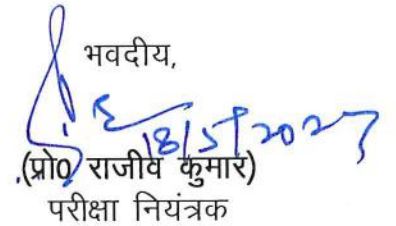 भवदीय,
18/5/2027
(प्रो0 राजीव कुमार)
परीक्षा नियंत्रक